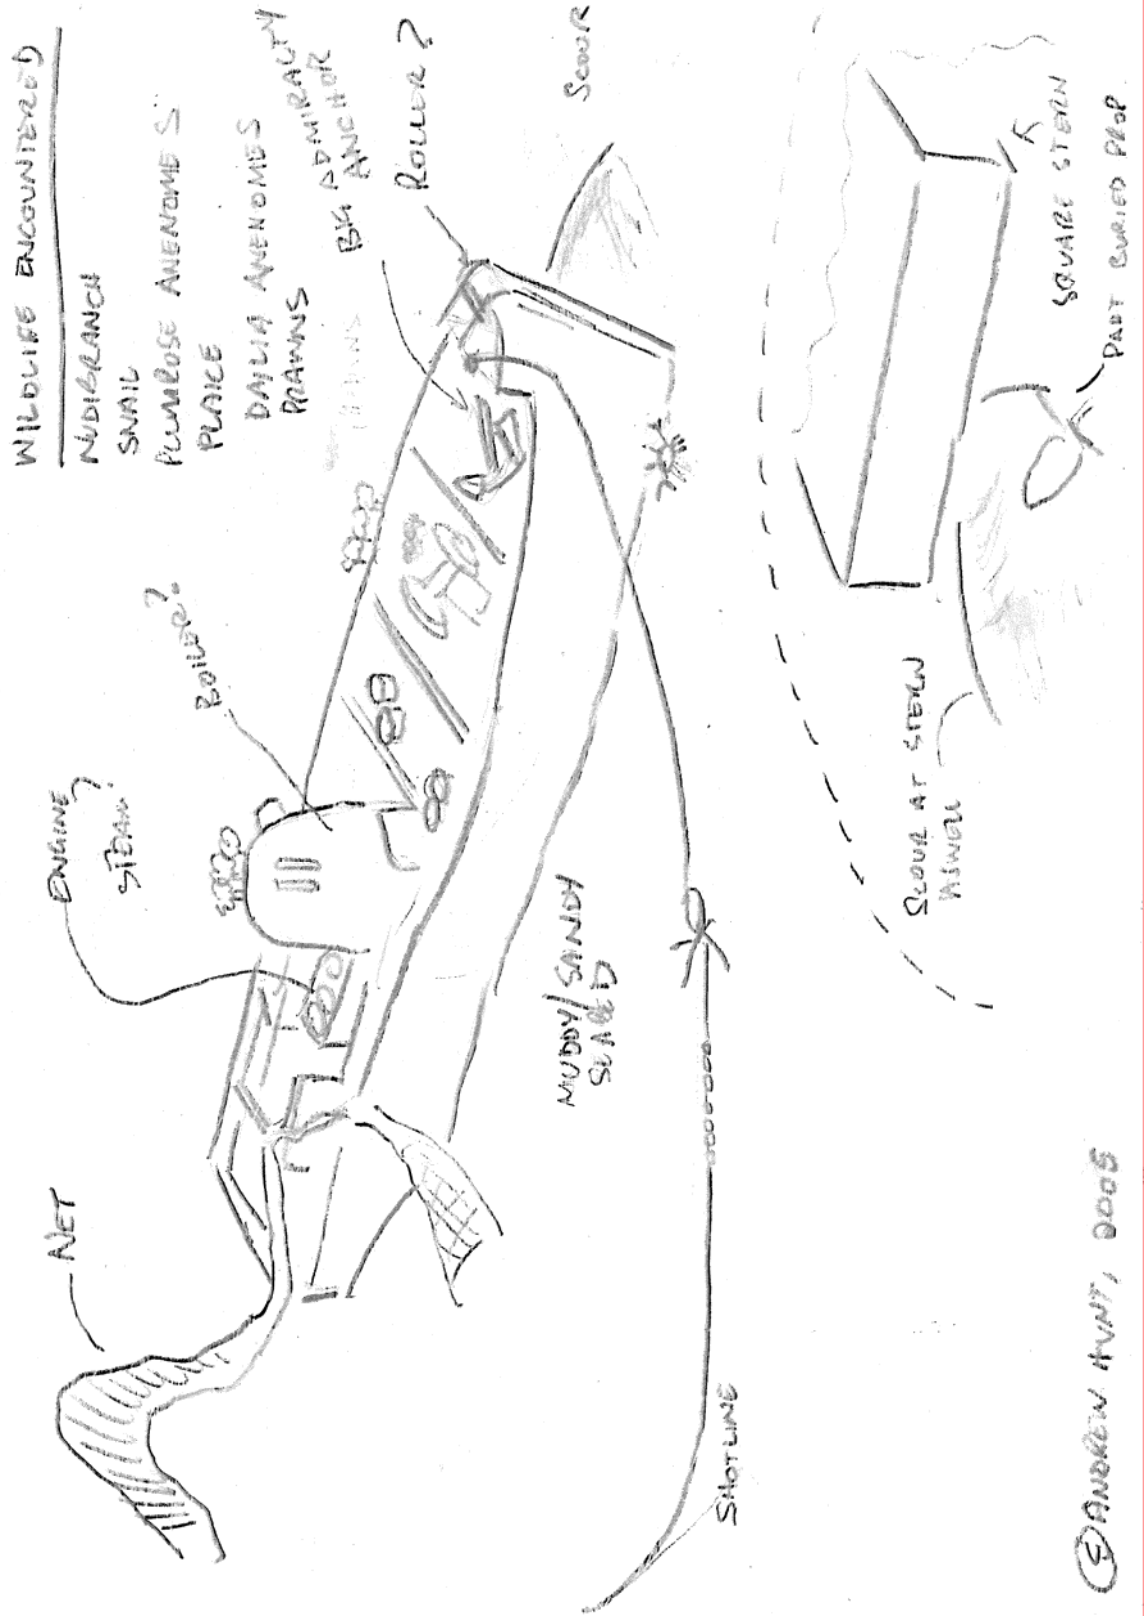 WILDLIFE ENCOUNTERED
NUDIBRANCH
SNAIL
PLUMROSE ANENOMES
PLAICE
DAILIA ANENOMES
PRAWNS
BIG ADMIRALTY
ANCHOR
ROLLER?
SCOUR
BOILER?
ENGINE
STEAM?
NET
MUDDY/SANDY
SEABED
SHOTLINE
SCOUR AT STERN
ASWELL
SQUARE STERN
PART BURIED PROP
© ANDREW HUNT, 2005